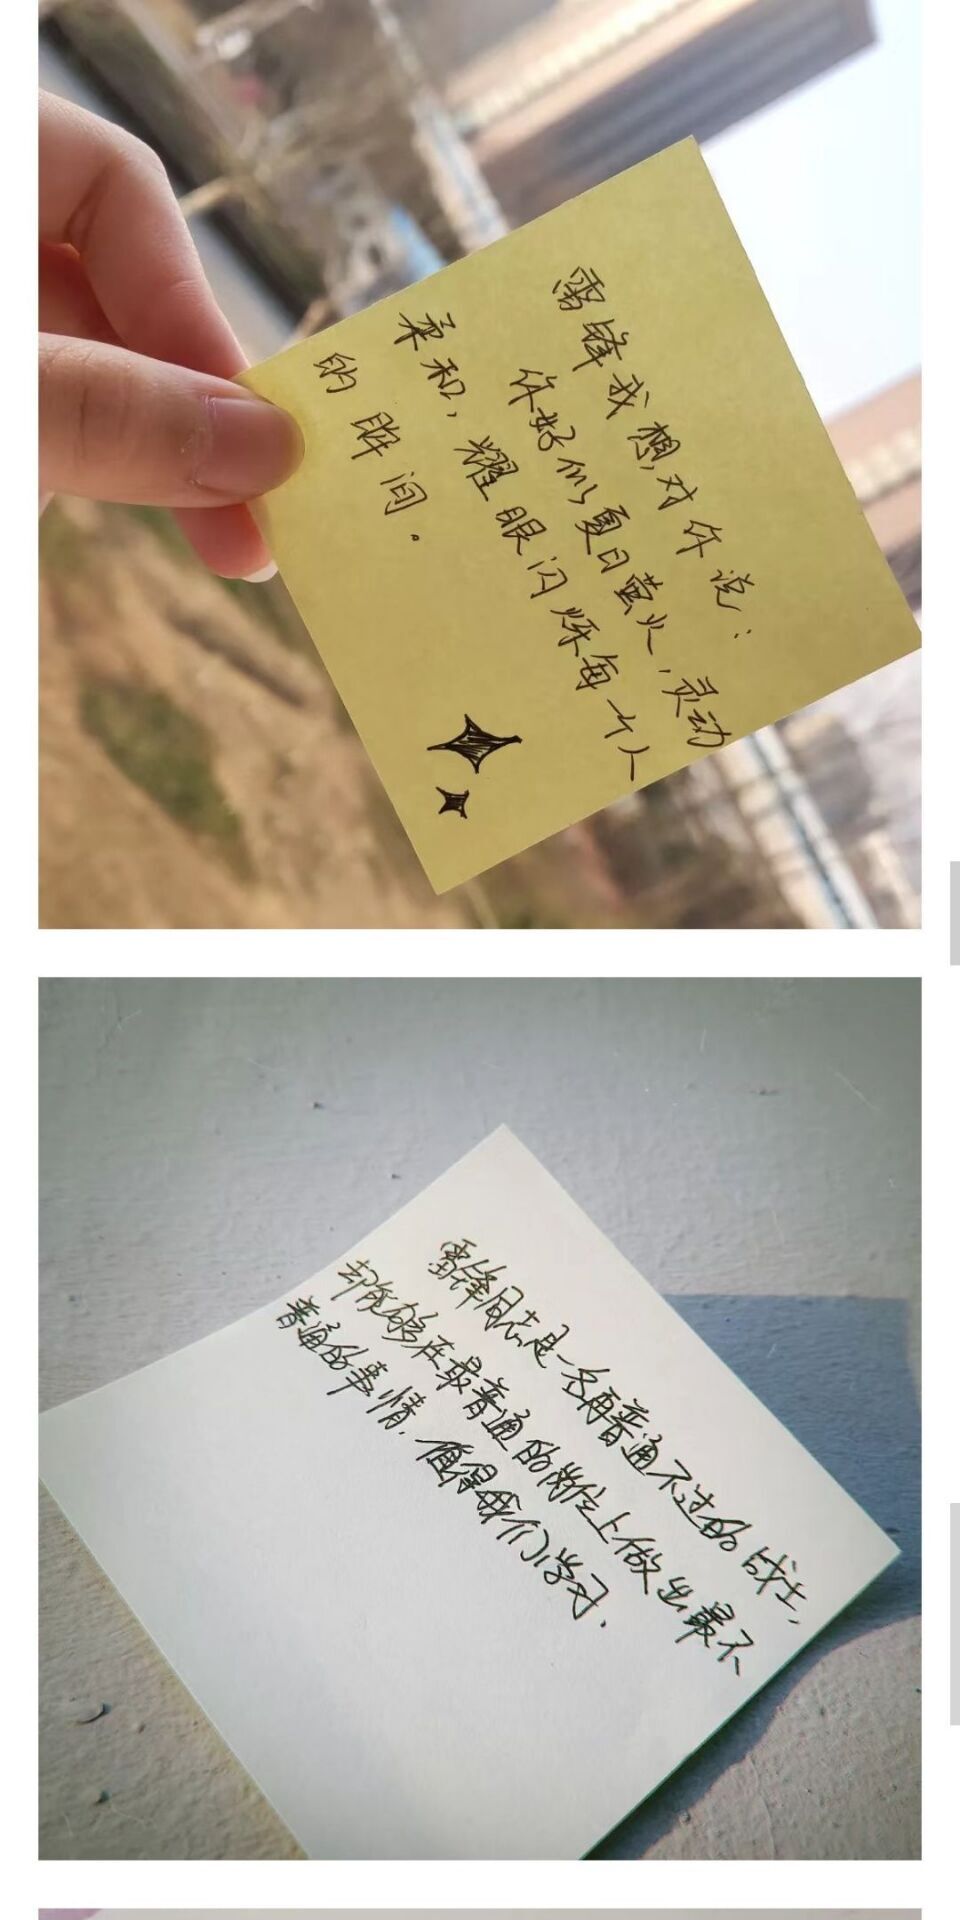 雷锋我想对你说：
你好似夏日萤火，灵动
柔和，耀眼闪烁每个人
的瞬间。
雷锋同志是一名再普通不过的战士，
却能够在最普通的岗位上做出最不
普通的事情，值得我们学习.